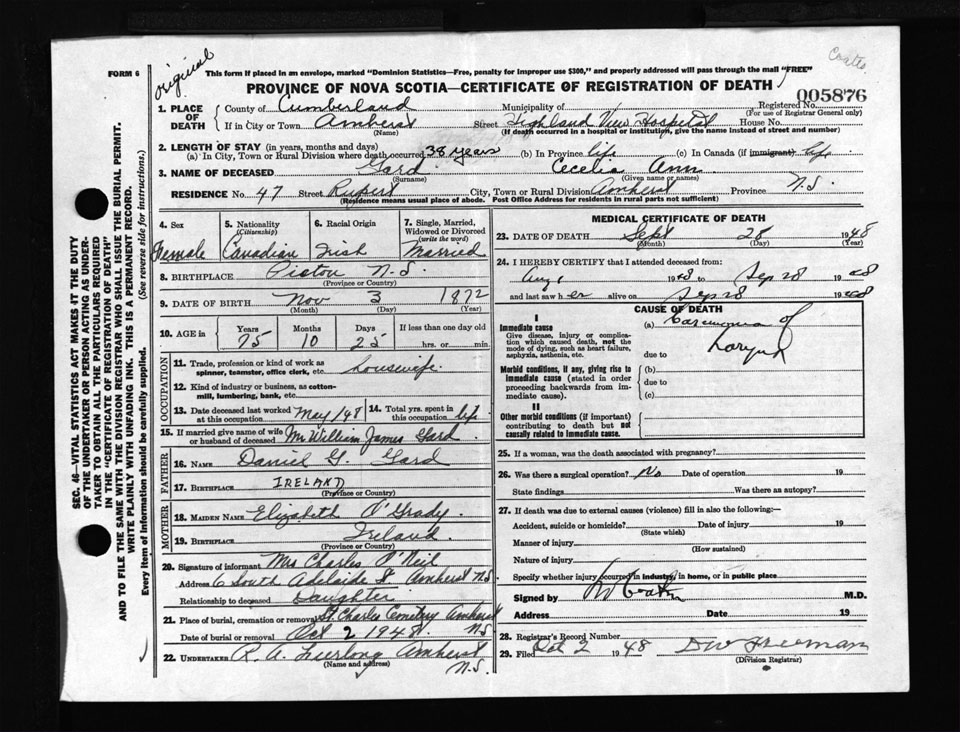 Coates
FORM 6
original
This form if placed in an envelope, marked "Dominion Statistics—Free, penalty for improper use $300," and properly addressed will pass through the mail "FREE"
PROVINCE OF NOVA SCOTIA—CERTIFICATE OF REGISTRATION OF DEATH
005876
1. PLACE OF DEATH
County of Cumberland Municipality of Registered No.
(For use of Registrar General only)
If in City or Town Amherst Street Highland View Hospital House No.
(Name) (If death occurred in a hospital or institution, give the name instead of street and number)
2. LENGTH OF STAY (in years, months and days)
(a) In City, Town or Rural Division where death occurred 38 years (b) In Province life (c) In Canada (if immigrant) life
3. NAME OF DECEASED Gard Cecelia Ann
(Surname) (Given name or names)
RESIDENCE No. 47 Street Rupert City, Town or Rural Division Amherst Province N.S.
(Residence means usual place of abode. Post Office Address for residents in rural parts not sufficient)
4. Sex Female
5. Nationality (Citizenship) Canadian
6. Racial Origin Irish
7. Single, Married, Widowed or Divorced (write the word) Married
8. BIRTHPLACE Pictou N.S.
(Province or Country)
9. DATE OF BIRTH Nov 3 1872
(Month) (Day) (Year)
10. AGE in Years Months Days If less than one day old
75 10 25 hrs. or min.
OCCUPATION
11. Trade, profession or kind of work as spinner, teamster, office clerk, etc. housewife.
12. Kind of industry or business, as cotton-mill, lumbering, bank, etc.
13. Date deceased last worked at this occupation May/48
14. Total yrs. spent in this occupation life
15. If married give name of wife or husband of deceased Mr William James Gard.
FATHER
16. NAME Daniel G. Gard
17. BIRTHPLACE IRELAND
(Province or Country)
MOTHER
18. MAIDEN NAME Elizabeth O'Grady.
19. BIRTHPLACE Ireland.
(Province or Country)
20. Signature of informant Mrs Charles O'Neil
Address 6 South Adelaide St Amherst N.S
Relationship to deceased Daughter
21. Place of burial, cremation or removal St Charles Cemetry Amherst N.S
Date of burial or removal Oct 2 1948.
22. UNDERTAKER R. A. Amherst N.S.
(Name and address)
MEDICAL CERTIFICATE OF DEATH
23. DATE OF DEATH Sept 28 1948
(Month) (Day) (Year)
24. I HEREBY CERTIFY that I attended deceased from:
Aug 1 1948 to Sep 28 1948
and last saw her alive on Sep 28 1948
CAUSE OF DEATH
I
Immediate cause
Give disease, injury or complication which caused death, not the mode of dying, such as heart failure, asphyxia, asthenia, etc.
(a) Carcinoma of
due to Larynx
Morbid conditions, if any, giving rise to immediate cause (stated in order proceeding backwards from immediate cause).
(b)
due to
(c)
II
Other morbid conditions (if important) contributing to death but not causally related to immediate cause.
25. If a woman, was the death associated with pregnancy?
26. Was there a surgical operation? No Date of operation 19
State findings Was there an autopsy?
27. If death was due to external causes (violence) fill in also the following:—
Accident, suicide or homicide? Date of injury 19
(State which)
Manner of injury
(How sustained)
Nature of injury
Specify whether injury occurred in industry, in home, or in public place
Signed by M.D.
Address Date 19
28. Registrar's Record Number
29. Filed Oct 2 1948 DW Freeman
(Division Registrar)
SEC. 46—VITAL STATISTICS ACT MAKES IT THE DUTY
OF THE UNDERTAKER OR PERSON ACTING AS UNDER-
TAKER TO OBTAIN ALL THE PARTICULARS REQUIRED
IN THE "CERTIFICATE OF REGISTRATION OF DEATH"
AND TO FILE THE SAME WITH THE DIVISION REGISTRAR WHO SHALL ISSUE THE BURIAL PERMIT.
WRITE PLAINLY WITH UNFADING INK. THIS IS A PERMANENT RECORD.
Every item of information should be carefully supplied. (See reverse side for instructions.)